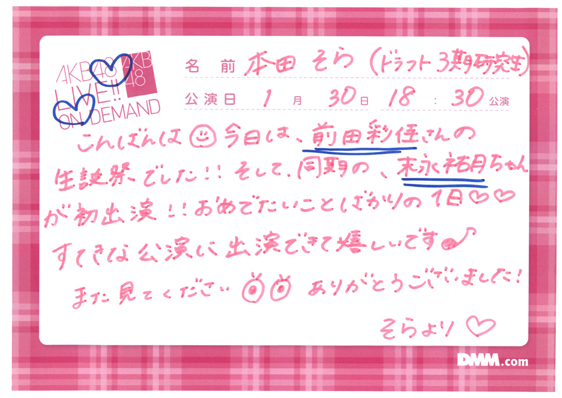 AKB48
LIVE!!
ON DEMAND
AKB
48
名前 本田そら(ドラフト3期研究生)
公演日 1月30日 18:30公演
こんばんは 今日は、前田彩佳さんの
生誕祭でした!! そして、同期の、末永祐月ちゃん
が初出演!! おめでたいことばかりの1日♡♡
すてきな公演に出演できて嬉しいです♪
また見てください ありがとうございました!
そらより♡
DMM.com